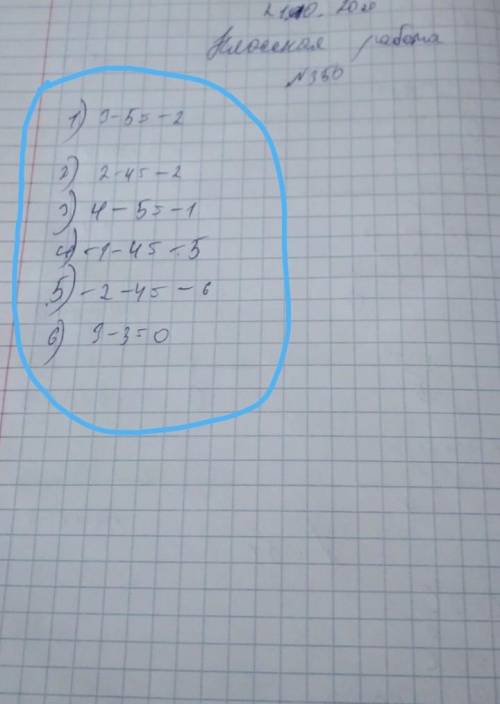 21.10.2020
Классная работа
№350
1) 3-5=-2
2) 2-4=-2
3) 4-5=-1
4) -1-4=-5
5) -2-4=-6
6) 3-3=0